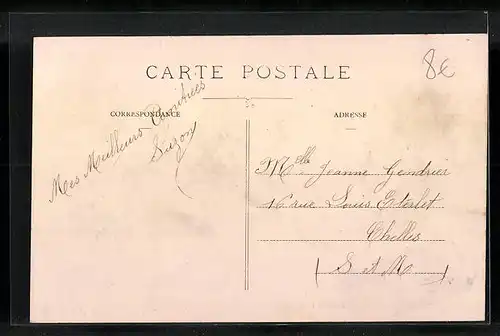 CARTE POSTALE
8€
CORRESPONDANCE
ADRESSE
Mes Meilleurs Amitiées
Suzon
Melle Jeanne Gendrier
16 rue Louis Eterlet
Chelles
(S et M)